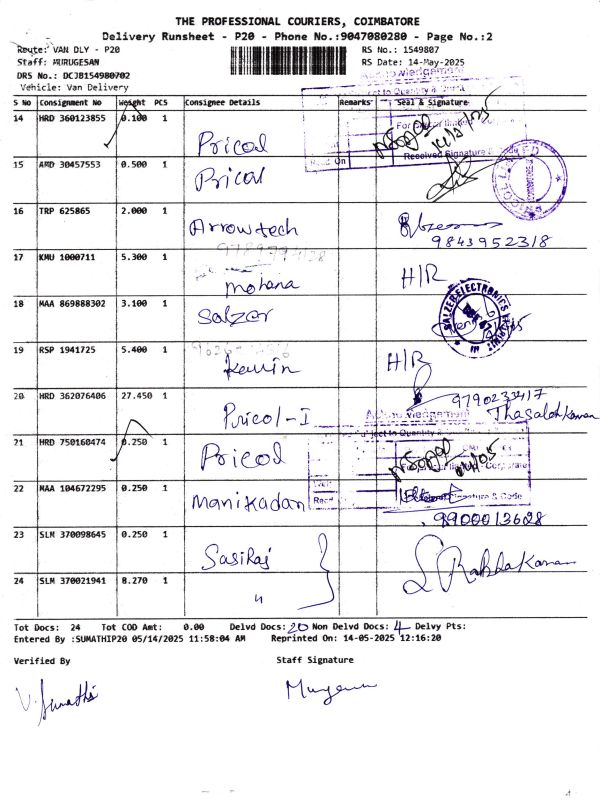 THE PROFESSIONAL COURIERS, COIMBATORE
Delivery Runsheet - P20 - Phone No.:9047080280 - Page No.:2
Route: VAN DLY - P20
RS No.: 1549807
Staff: MURUGESAN
RS Date: 14-May-2025
DRS No.: DCJB154980702
Vehicle: Van Delivery
Acknowledgement
S No Consignment No Weight PCS Consignee Details Remarks Seal & Signature
14 HRD 360123855 0.100 1 Pricol
Received Signature &
15 AMD 30457553 0.500 1 Pricol
PRICOL LIMITED
16 TRP 625865 2.000 1 Arrowtech
9843952318
17 KMU 1000711 5.300 1 Mohana H/R
18 MAA 869888302 3.100 1 Salzer
SALZER ELECTRONICS
19 RSP 1941725 5.400 1 Kavin H/R
20 HRD 362076406 27.450 1 Pricol-I 9790233417
Acknowledgement
21 HRD 750160474 0.250 1 Pricol
Corporate
22 MAA 104672295 0.250 1 Manikadan
Signature & Code
9900013628
23 SLM 370098645 0.250 1 Sasiraj
24 SLM 370021941 8.270 1 "
Tot Docs: 24 Tot COD Amt: 0.00 Delvd Docs: 20 Non Delvd Docs: 4 Delvy Pts:
Entered By :SUMATHIP20 05/14/2025 11:58:04 AM Reprinted On: 14-05-2025 12:16:20
Verified By Staff Signature
V. Sumathi